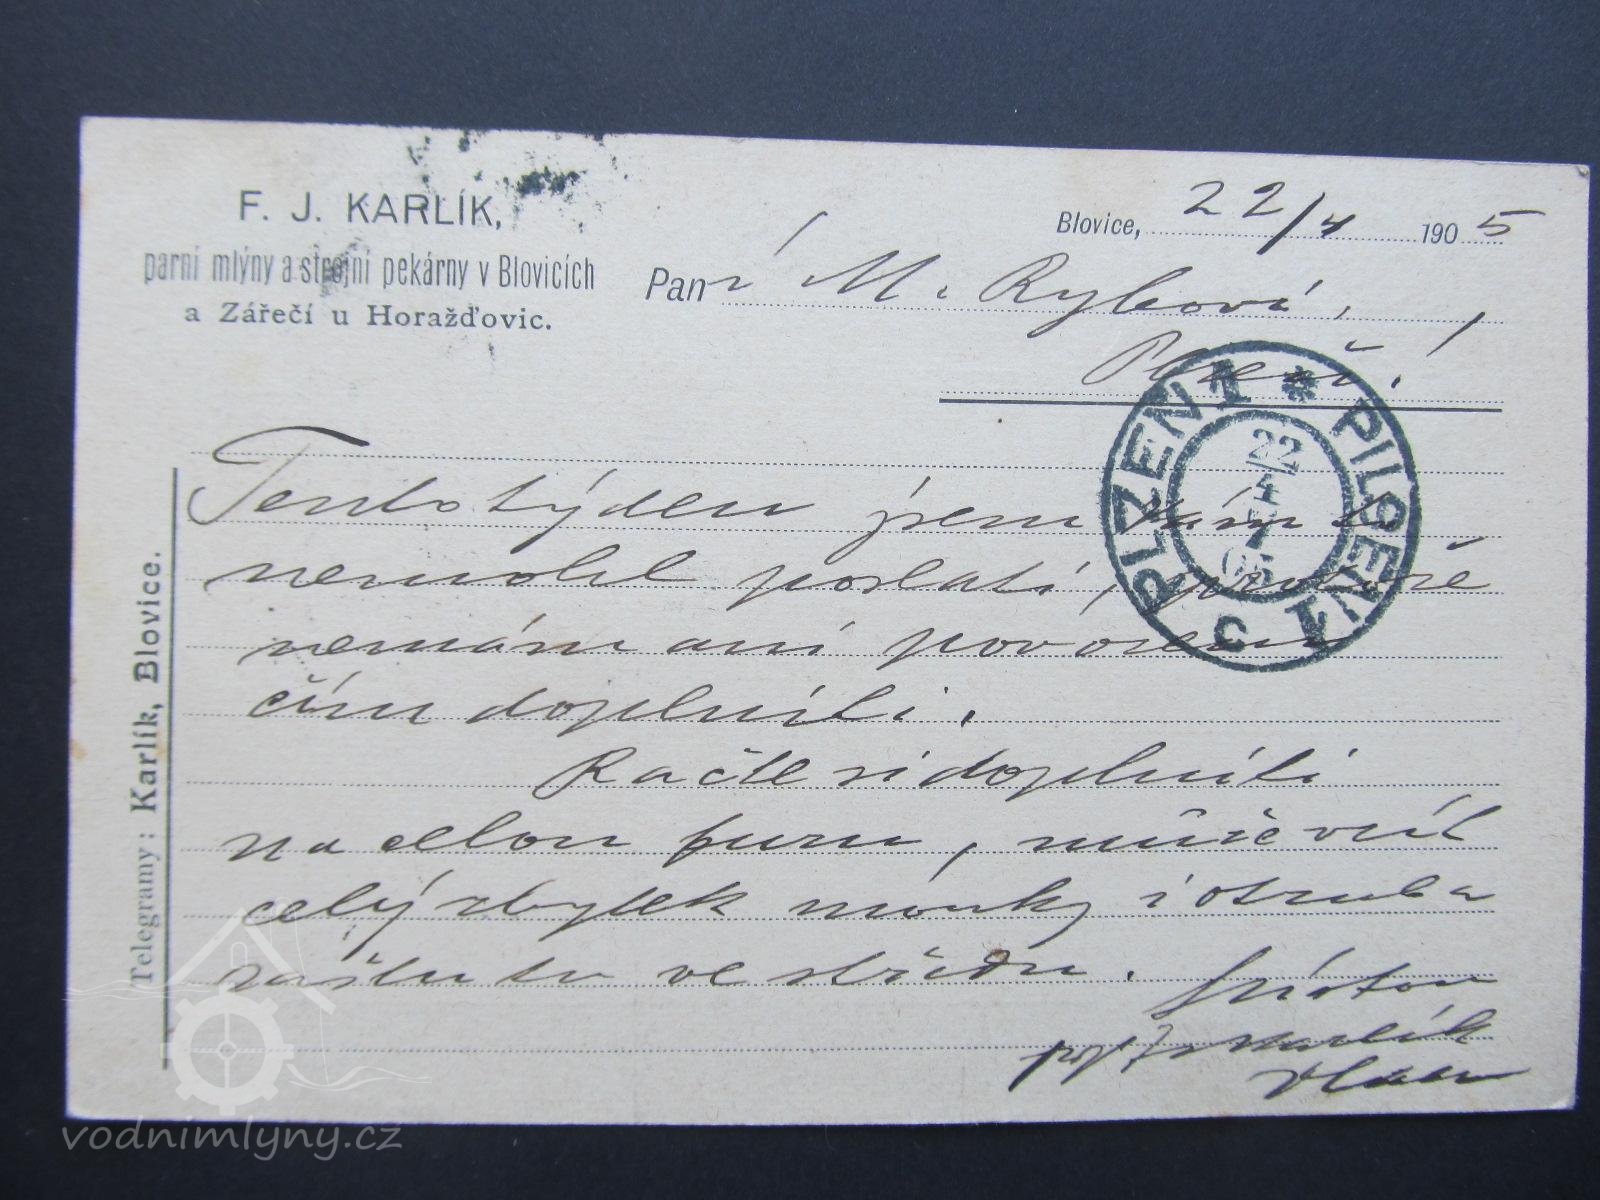 F. J. KARLÍK,
parní mlýny a strojní pekárny v Blovicích
a Zářečí u Horažďovic.
Blovice, 22/4 1905
Paní M. Rybová,
Plzeň!
PLZEŇ 1 * PILSEN 1 c
22
4
05
Telegramy: Karlík, Blovice.
Tento týden jsem
nemohl poslati, protože
nemám ani povozem
čím doplniti.
Račte si doplniti
na celou furu, může víc
celý zbytek mouky i otruba
zašlu ve středu.
Karlík
vodnimlyny.cz